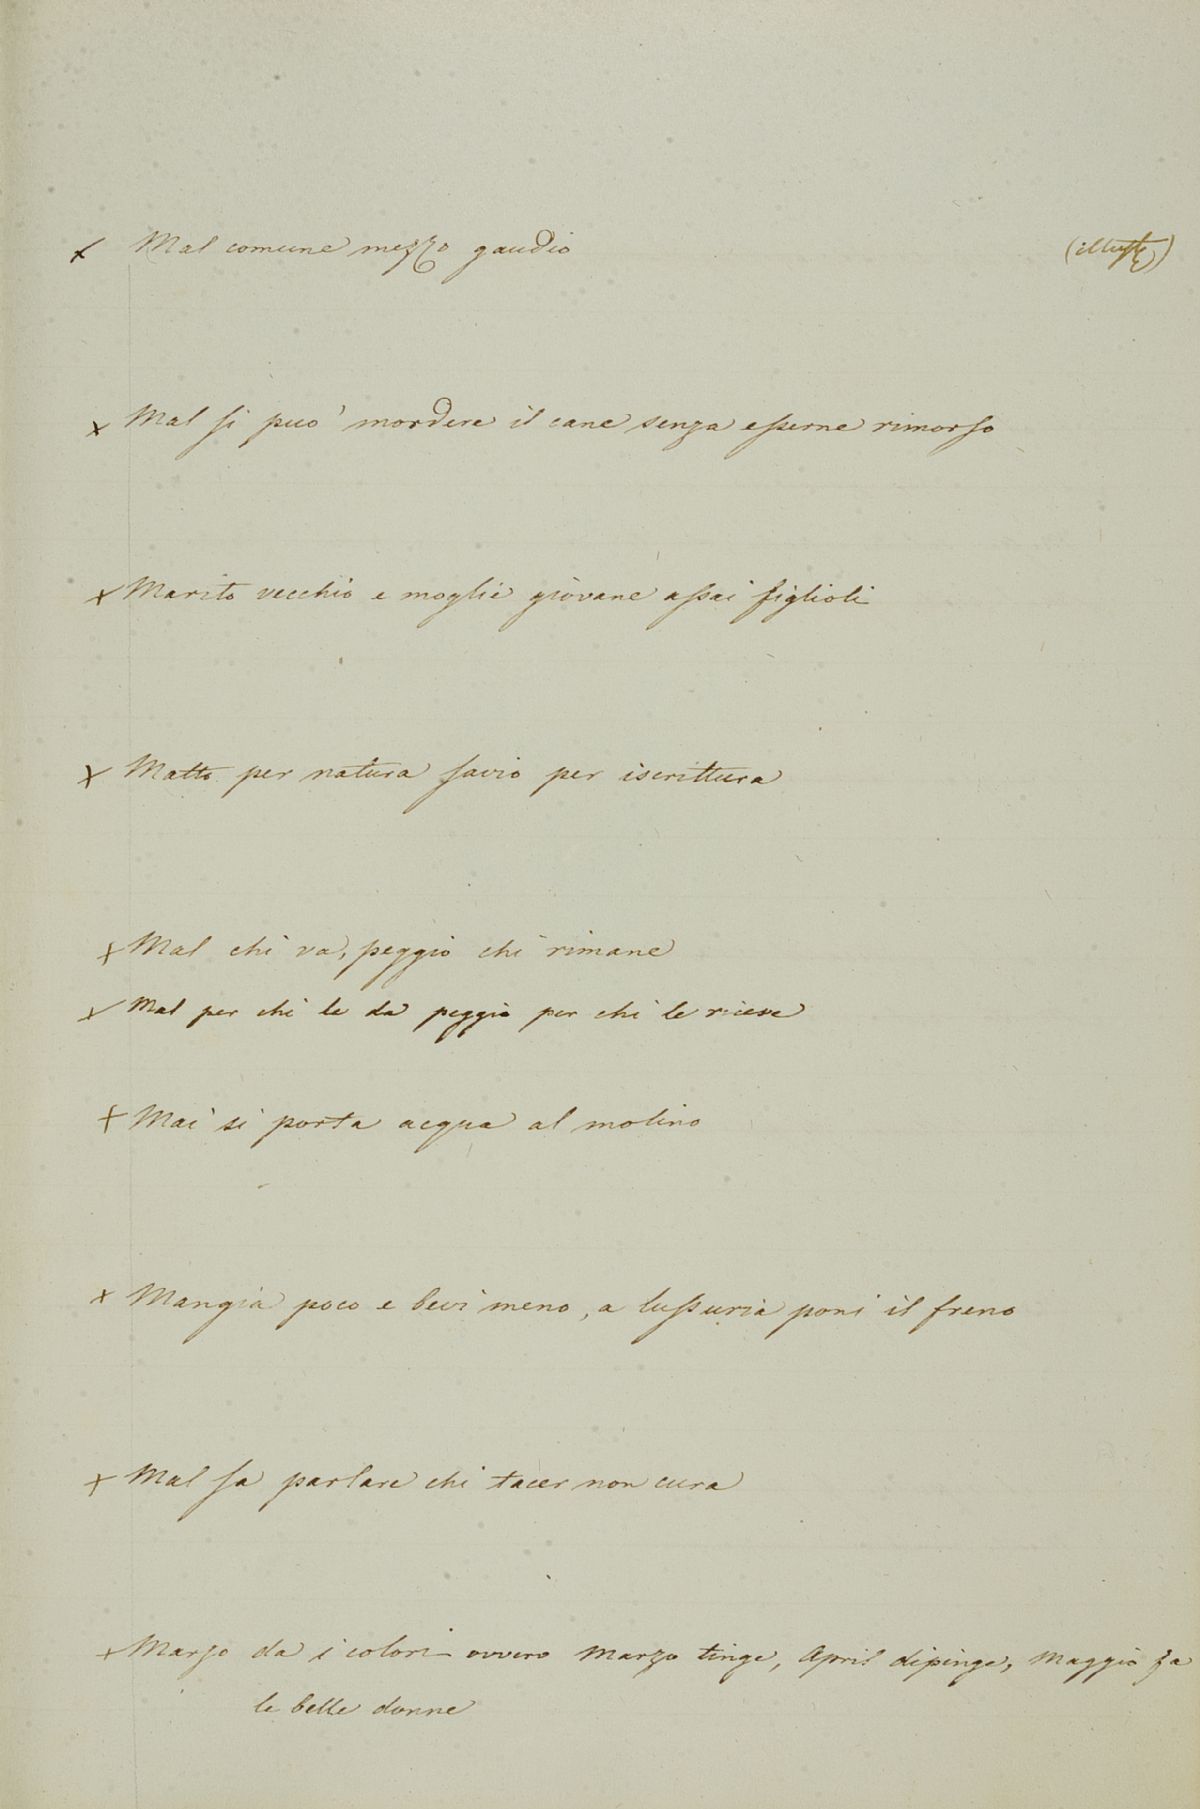 x Mal comune mezzo gaudio (illustr)
x Mal si puo' mordere il cane senza esserne rimorso
x Marito vecchio e moglie giovane assai figlioli
x Matto per natura savio per iscrittura
x Mal chi va, peggio chi rimane
x Mal per chi le da peggio per chi le riceve
x Mai si porta acqua al molino
x Mangia poco e bevi meno, a lussuria poni il freno
x Mal sa parlare chi tacer non cura
x Marzo da i colori ovvero Marzo tinge, April dipinge, Maggio fa
le belle donne